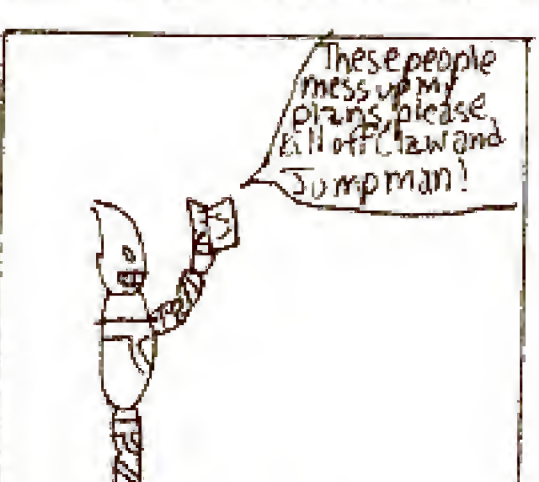 These people
mess up my
plans, please
kill off Claw and
Jumpman!